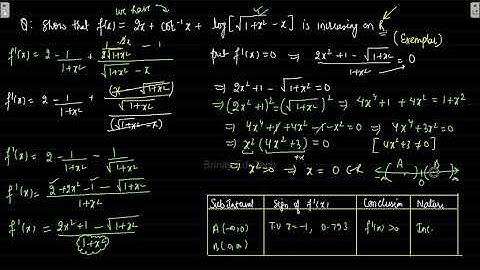 we have
Q: Show that f(x) = 2x + cot⁻¹x + log[√1+x² - x] is increasing on R
(Exemplar)
f'(x) = 2 - 1/(1+x²) + (2x/(2√1+x²) - 1)/(√1+x² - x)
f'(x) = 2 - 1/(1+x²) + ((x - √1+x²)/√1+x²)/(√1+x² - x)
f'(x) = 2 - 1/(1+x²) - 1/√1+x²
f'(x) = (2+2x² - 1 - √1+x²)/(1+x²)
f'(x) = (2x²+1 - √1+x²)/(1+x²)
put f'(x) = 0 ⇒ (2x²+1 - √1+x²)/(1+x²) = 0
⇒ 2x²+1 - √1+x² = 0
⇒ (2x²+1)² = (√1+x²)² ⇒ 4x⁴+1+4x² = 1+x²
⇒ 4x⁴+1+4x²-1-x² = 0 ⇒ 4x⁴+3x² = 0
⇒ x²(4x²+3) = 0 [4x²+3 ≠ 0]
⇒ x² = 0 ⇒ x = 0 ∈ R
A B
-∞ 0 ∞
Sub Interval Sign of f'(x) Conclusion Nature
A(-∞,0) T.V x=-1, 0.793 f'(x) > 0 Inc.
B(0,∞)